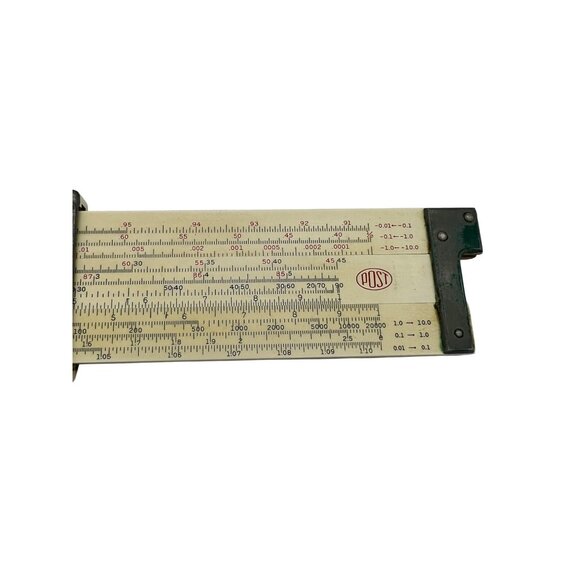 .95 .94 .93 .92 .91 -0.01←-0.1
60 55 50 45 40 -0.1←-1.0
.01 .005 .002 .001 .0005 .0002 .0001 -1.0←-10.0
60,30 55,35 50,40 45,45
87,3 86,4 85,5
POST
50,40 40,50 30,60 20,70 90
6 7 8 9
5 6 7 8 9
100 200 500 1000 2000 5000 10000 20000 1.0→10.0
1.6 1.7 1.8 1.9 2 2.5 e 0.1→1.0
1.05 1.06 1.07 1.08 1.09 1.10 0.01→0.1